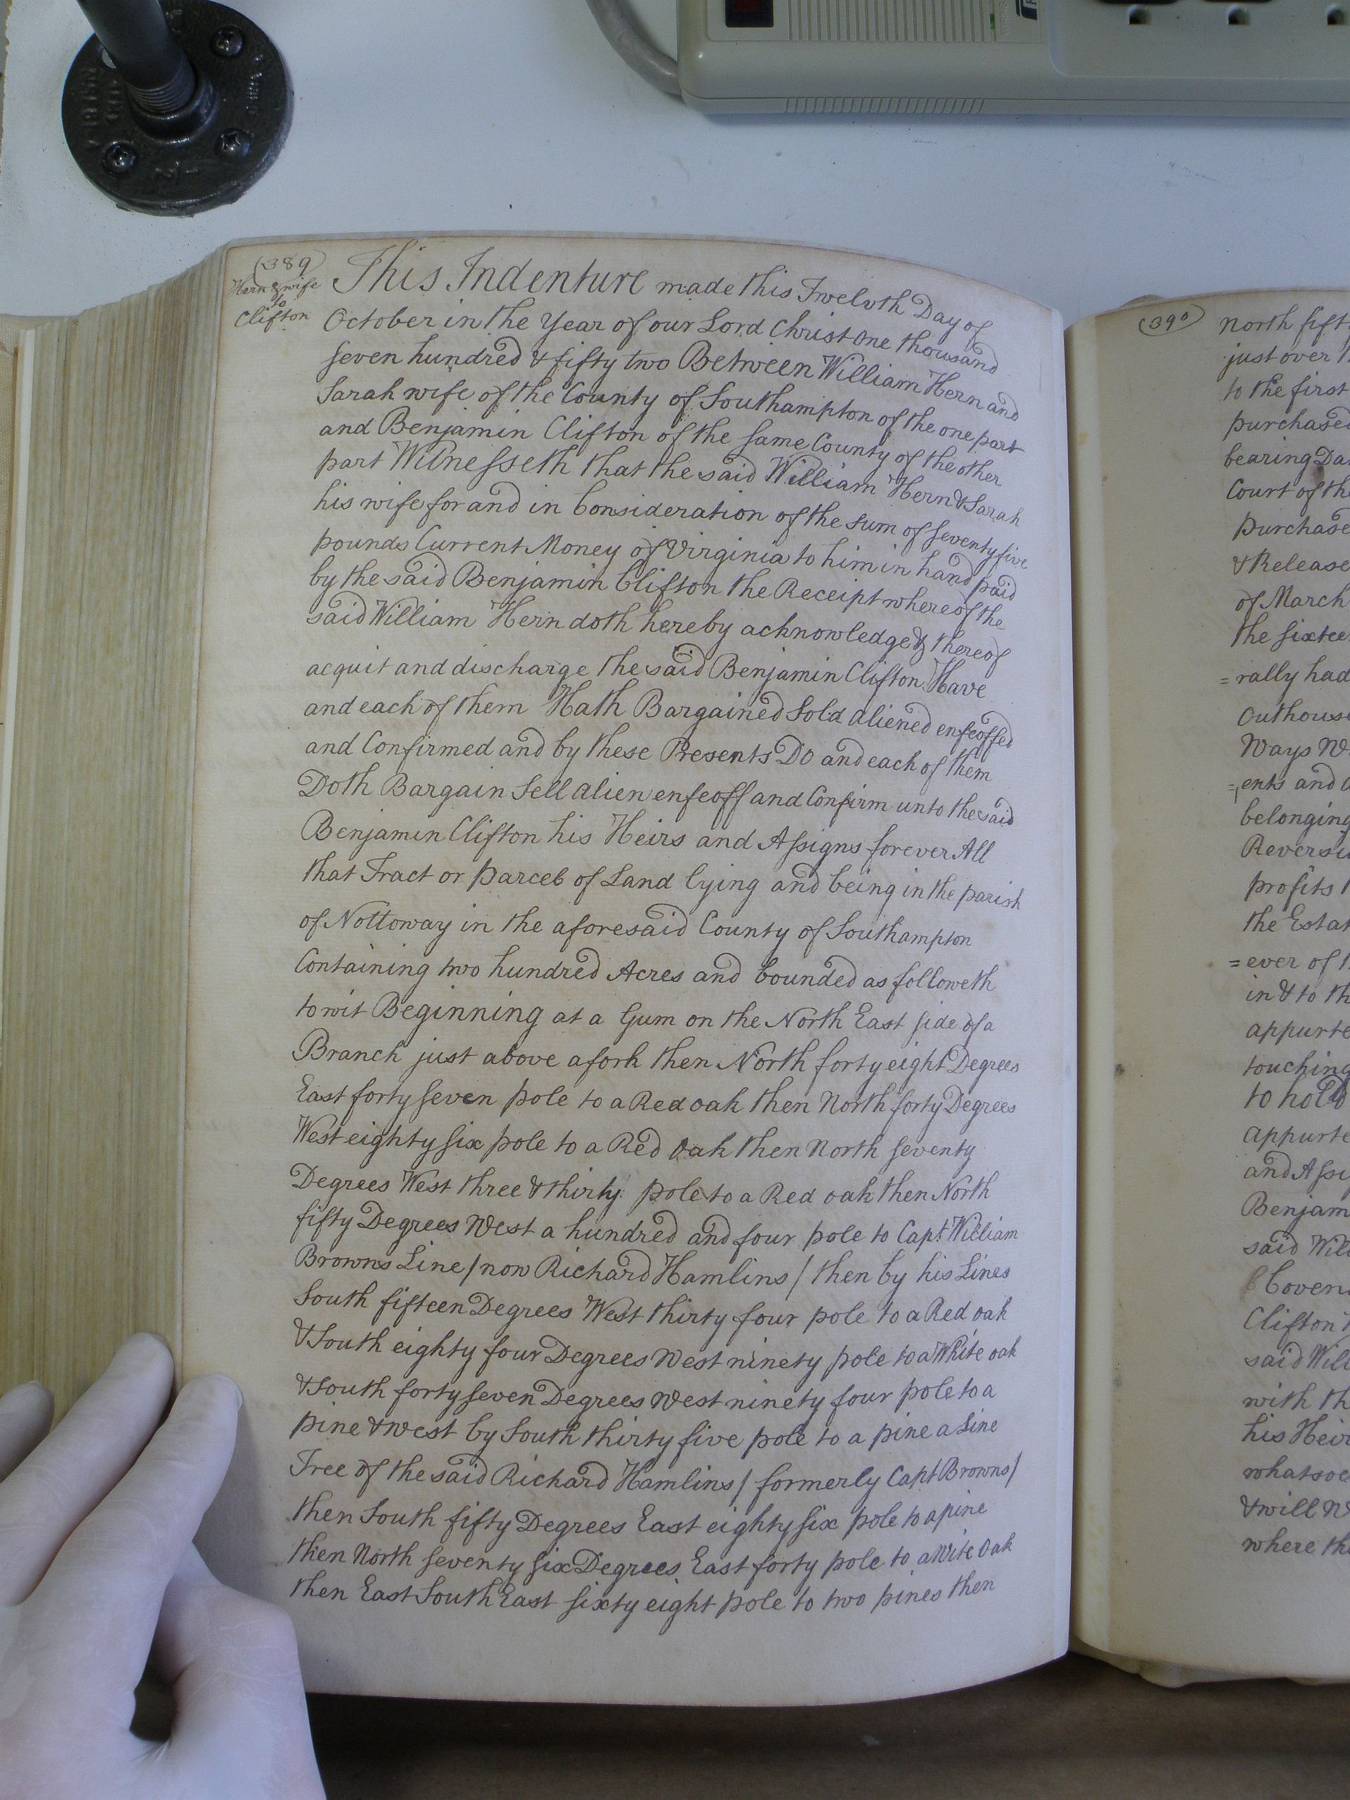 (389)
Hern & wife
to
Clifton
This Indenture made this Twelvth Day of
October in the Year of our Lord Christ One thousand
seven hundred & fifty two Between William Hern and
Sarah wife of the County of Southampton of the one part
and Benjamin Clifton of the same County of the other
part Witnesseth that the said William Hern & Sarah
his wife for and in Consideration of the sum of seventy five
pounds Current Money of Virginia to him in hand paid
by the said Benjamin Clifton the Receipt whereof the
said William Hern doth hereby acknowledge & thereof
acquit and discharge the said Benjamin Clifton Have
and each of them Hath Bargained Sold aliened enfeoffed
and Confirmed and by these Presents Do and each of them
Doth Bargain Sell alien enfeoff and Confirm unto the said
Benjamin Clifton his Heirs and Assigns forever All
that Tract or parcel of Land lying and being in the parish
of Nottoway in the aforesaid County of Southampton
Containing two hundred Acres and bounded as followeth
to wit Beginning at a Gum on the North East side of a
Branch just above a fork then North forty eight Degrees
East forty seven pole to a Red oak then North forty Degrees
West eighty six pole to a Red Oak then North seventy
Degrees West three & thirty pole to a Red oak then North
fifty Degrees West a hundred and four pole to Capt William
Browns Line / now Richard Hamlins / then by his Lines
South fifteen Degrees West thirty four pole to a Red oak
& South eighty four Degrees West ninety pole to a White oak
& South forty seven Degrees West ninety four pole to a
pine & west by South thirty five pole to a pine a Line
Tree of the said Richard Hamlins / formerly Capt Browns /
then South fifty Degrees East eighty six pole to a pine
then North seventy six Degrees East forty pole to a Wite Oak
then East South East sixty eight pole to two pines then
(390)
North fift
just over
to the first
purchased
bearing Da
Court of th
purchase
& Release
of March
the sixtee
=rally had
Outhous
Ways W
=ents and
belonging
Reversi
profits
the Estat
=ever of
in & to th
appurte
touching
to hold
appurte
and Assi
Benjam
said Will
Coven
Clifton
said Will
with th
his Heir
whatsoe
& will W
where th